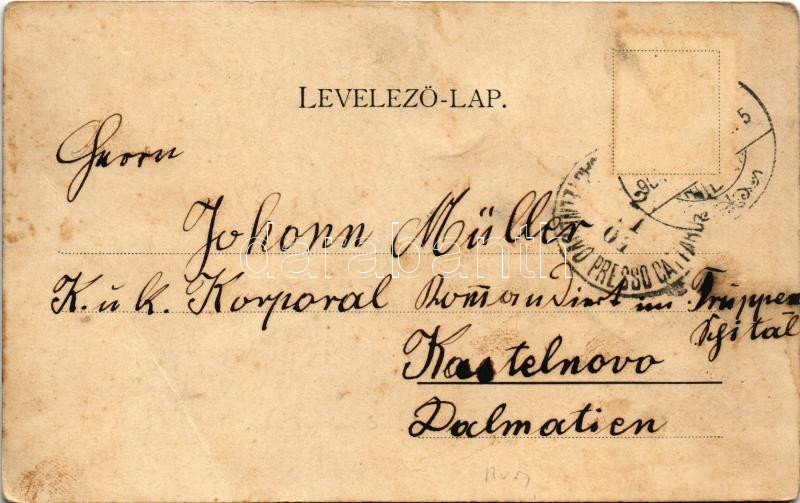 LEVELEZÖ-LAP.
Herrn
Johann Müller
K. u k. Korporal Kommandiert im Truppen
Spital
Kastelnovo
Dalmatien
PRESSO CATTARO
darabanth